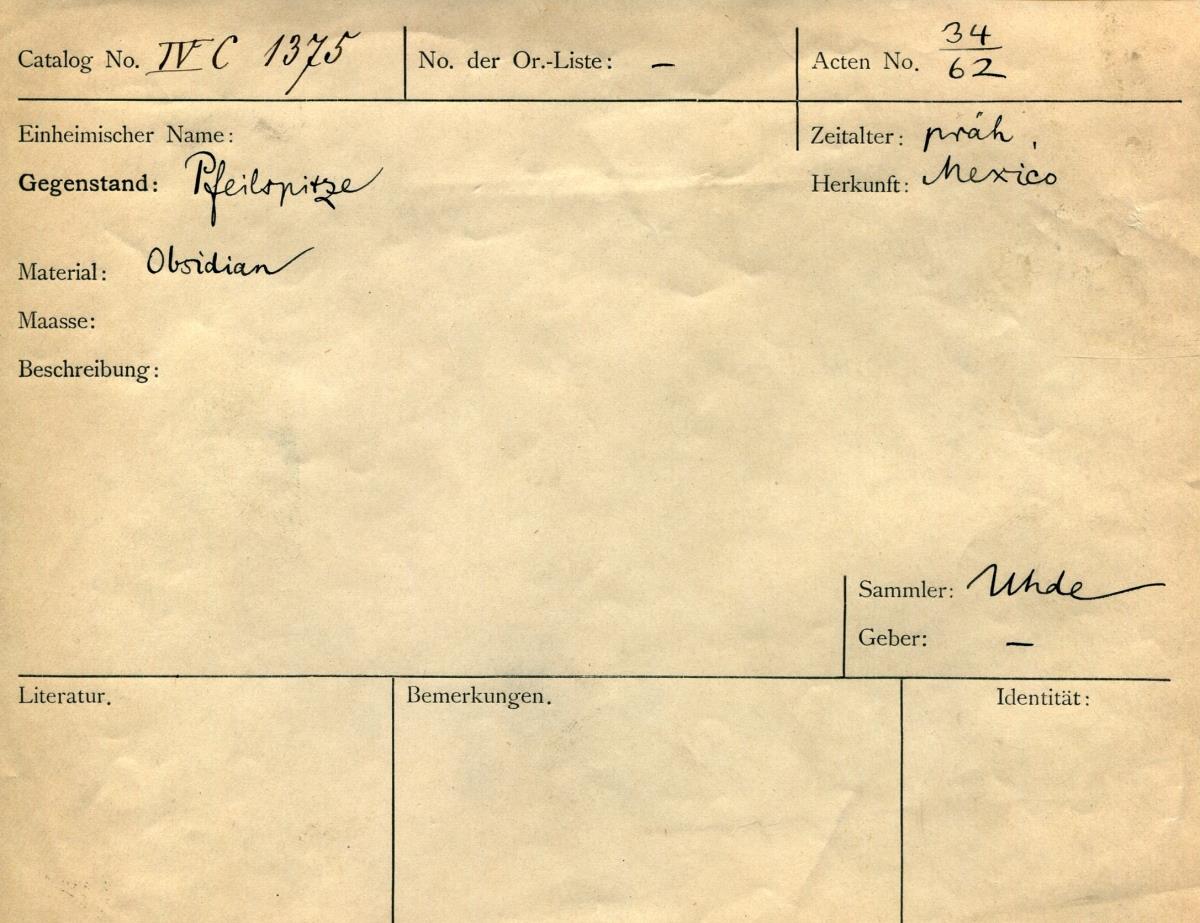 Catalog No. IV C 1375 No. der Or.-Liste: — Acten No. 34/62
Einheimischer Name:
Zeitalter: präh.
Gegenstand: Pfeilspitze
Herkunft: Mexico
Material: Obsidian
Maasse:
Beschreibung:
Sammler: Uhde
Geber: —
Literatur. Bemerkungen. Identität: